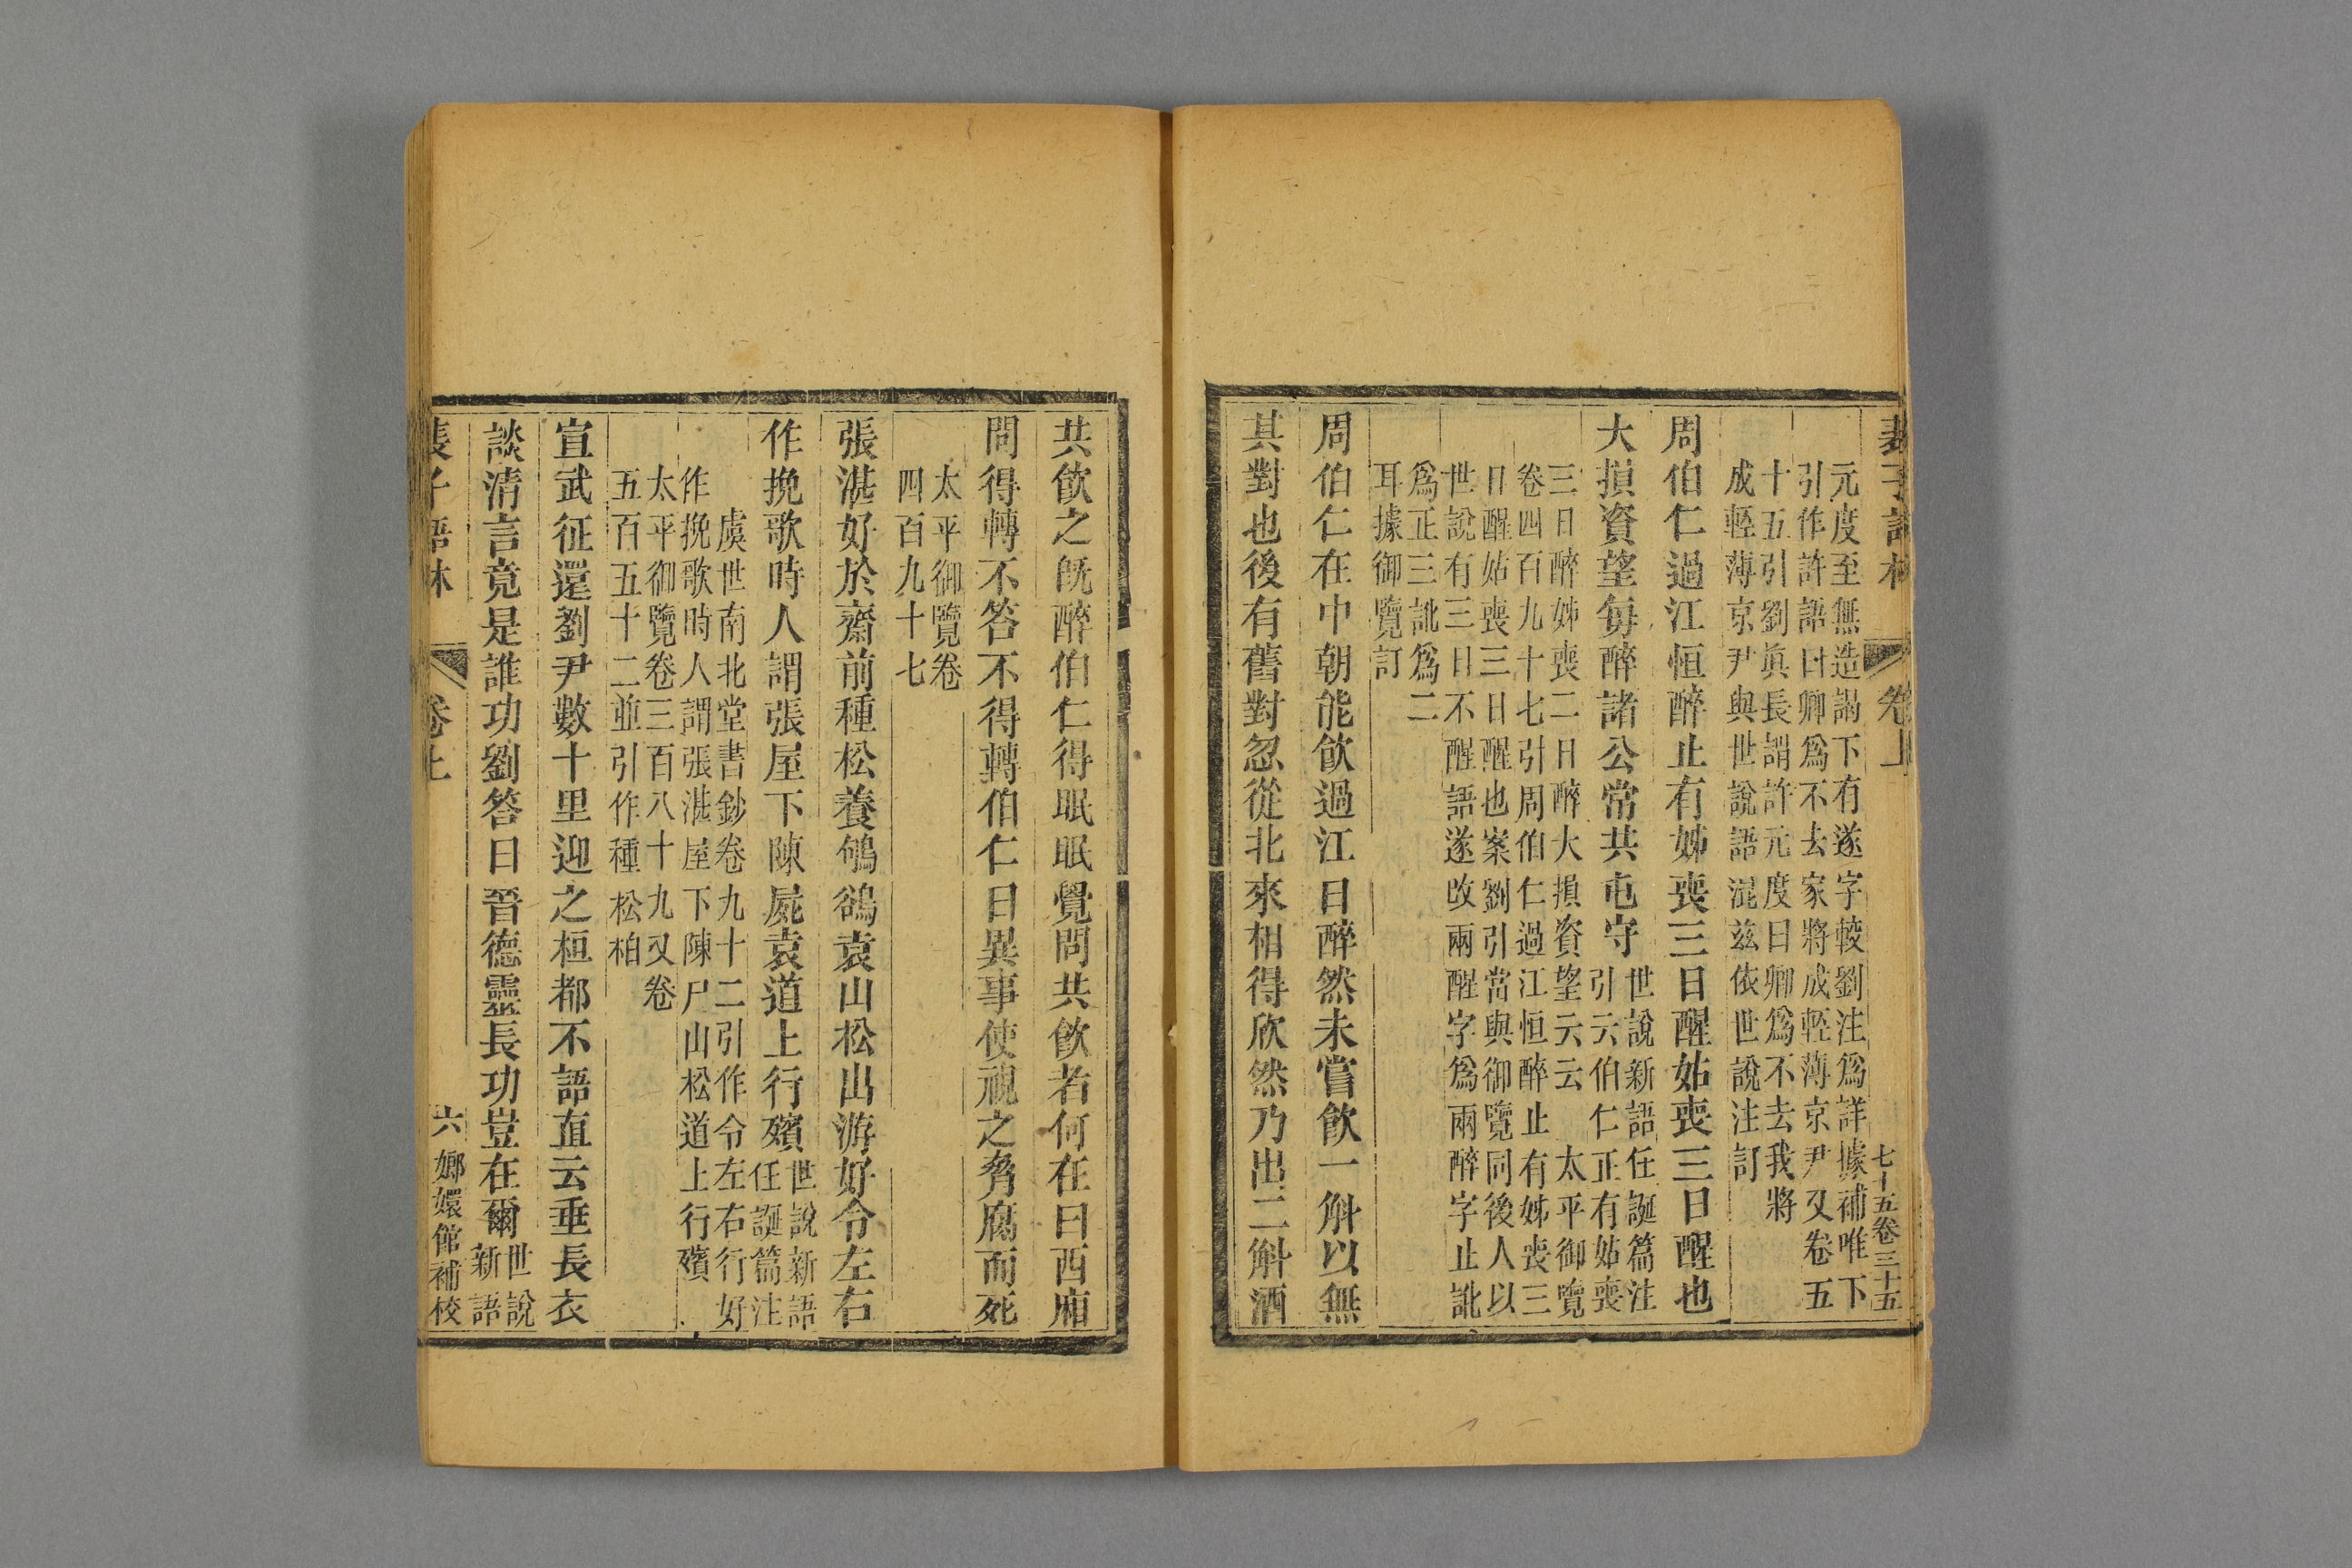 裴子語林
卷上
七十五卷三十五
元度至無造謁下有遂字較劉注爲詳據補唯下
引作許語曰卿爲不去家將成輕薄京尹又卷五
十五引劉眞長謂許元度曰卿爲不去我將
成輕薄京尹與世說語混兹依世說注訂
周伯仁過江恒醉止有姊喪三日醒姑喪三日醒也
大損資望每醉諸公常共屯守
世說新語任誕篇注
引云伯仁正有姑喪
三日醉姊喪二日醉大損資望云云 太平御覽
卷四百九十七引周伯仁過江恒醉止有姊喪三
日醒姑喪三日醒也案劉引當與御覽同後人以
世說有三日不醒語遂改兩醒字爲兩醉字止訛
爲正三訛爲二
耳據御覽訂
周伯仁在中朝能飲過江日醉然未嘗飲一斛以無
其對也後有舊對忽從北來相得欣然乃出二斛酒
共飲之旣醉伯仁得眠眠覺問共飲者何在曰西廂
問得轉不答不得轉伯仁曰異事使視之脅腐而死
太平御覽卷
四百九十七
張湛好於齋前種松養鴝鵒袁山松出游好令左右
作挽歌時人謂張屋下陳屍袁道上行殯
世說新語
任誕篇注
虞世南北堂書鈔卷九十二引作令左右行好
作挽歌時人謂張湛屋下陳尸山松道上行殯
太平御覽卷三百八十九又卷
五百五十二並引作種松柏
宣武征還劉尹數十里迎之桓都不語直云垂長衣
談清言竟是誰功劉答曰晉德靈長功豈在爾
世說
新語
裴子語林
卷上
六
嫏嬛館補校